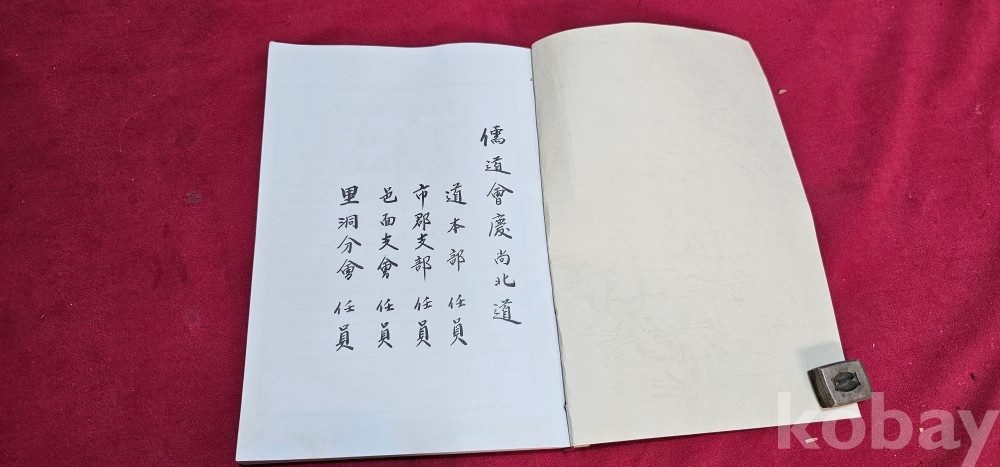 儒道會慶尚北道
道本部 任員
市郡支部 任員
邑面支會 任員
里洞分會 任員
kobay